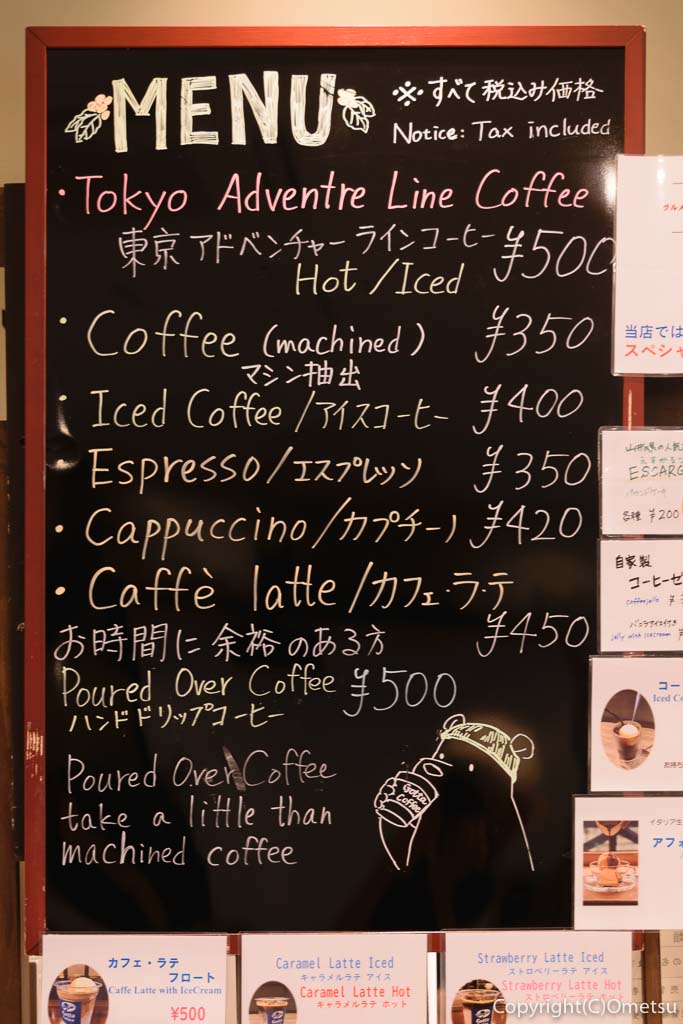 MENU
※すべて税込み価格
Notice: Tax included
・Tokyo Adventre Line Coffee
東京アドベンチャーラインコーヒー ¥500
Hot /Iced
・Coffee (machined) ¥350
マシン抽出
・Iced Coffee/アイスコーヒー ¥400
Espresso/エスプレッソ ¥350
・Cappuccino/カプチーノ ¥420
・Caffè latte/カフェ・ラ・テ
¥450
お時間に余裕のある方
Poured Over Coffee ¥500
ハンドドリップコーヒー
Poured Over Coffee
take a little than
machined coffee
Gotta
Coffee
グルメ
当店では
スペシャ
ESCARG
各種 ¥200
自家製
コーヒーゼ
coffeejello
バニラアイス付き
jelly with icecream
コー
Iced Co
お待ち
イタリア生
アフォ
カフェ・ラテ
フロート
Caffe Latte with IceCream
¥500
Caramel Latte Iced
キャラメルラテ アイス
Caramel Latte Hot
キャラメルラテ ホット
Strawberry Latte Iced
ストロベリーラテ アイス
Strawberry Latte Hot
ストロベリーラテ ホット
Copyright(C)Ometsu